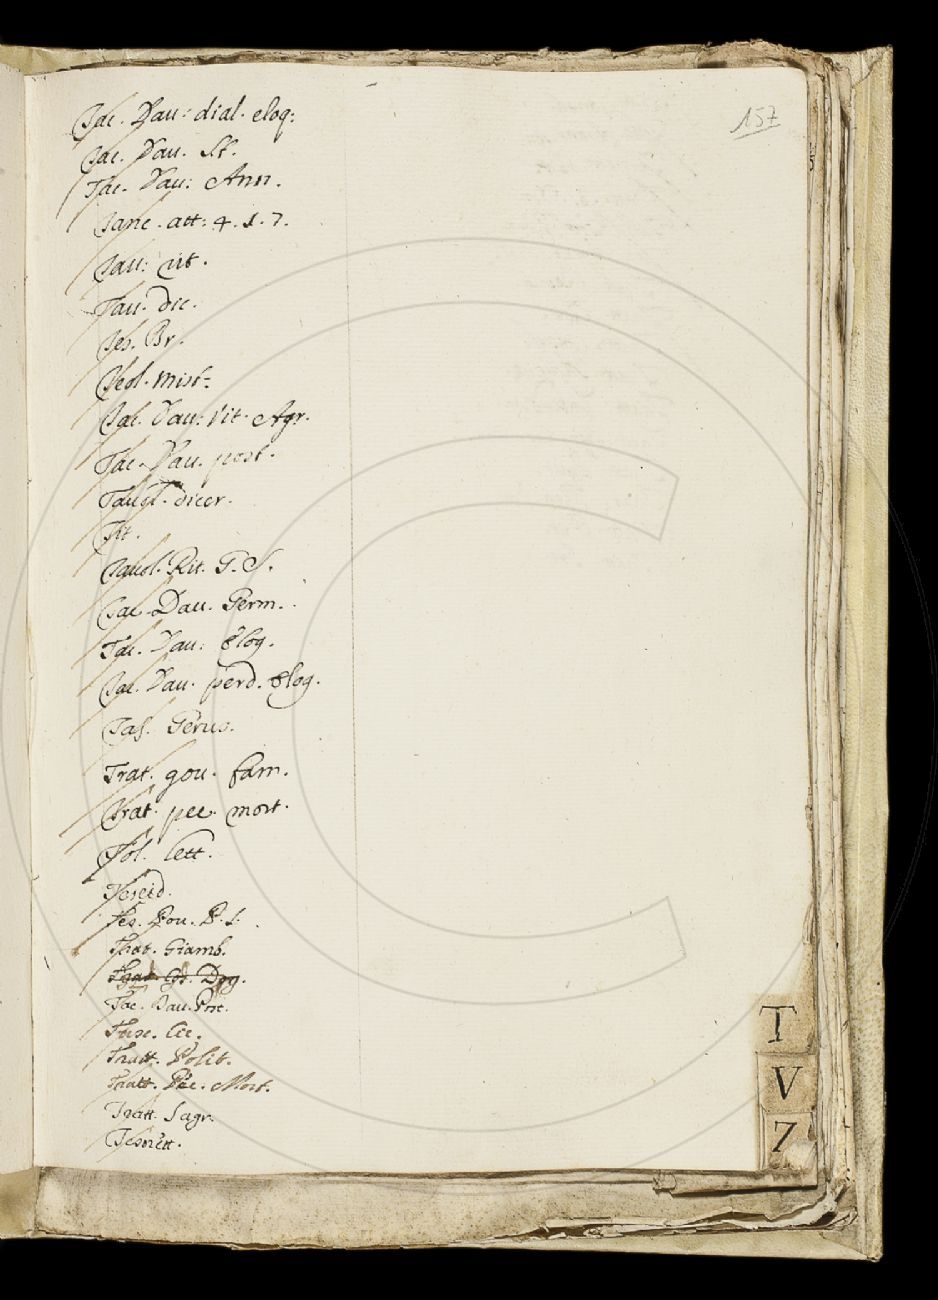 157
Tac. Dau: dial. eloq:
Tac. Dau. St.
Tac. Dau: Ann.
Tanc. att: 4. 1. 7.
Tau: rit.
Tau. dic.
Tes. Br.
Teol. mist:
Tac. Dau: Vit. Agr.
Tac. Dau. post.
Tauol. dicer.
Tit.
Tauol. Rit. G. S.
Tac. Dau. Germ.
Tac. Dau: Elog.
Tac. Dau. perd. Elog.
Tass. Gerus.
Trat. gou. fam.
Trat. pec. mort.
Tol. lett.
Teseid.
Tes. Pou. P. S.
Trat. Giamb.
Tac. Dau. Post.
Tratt. Polit.
Tratt. Pec. Mort.
Tratt. Sagr.
T
V
Z